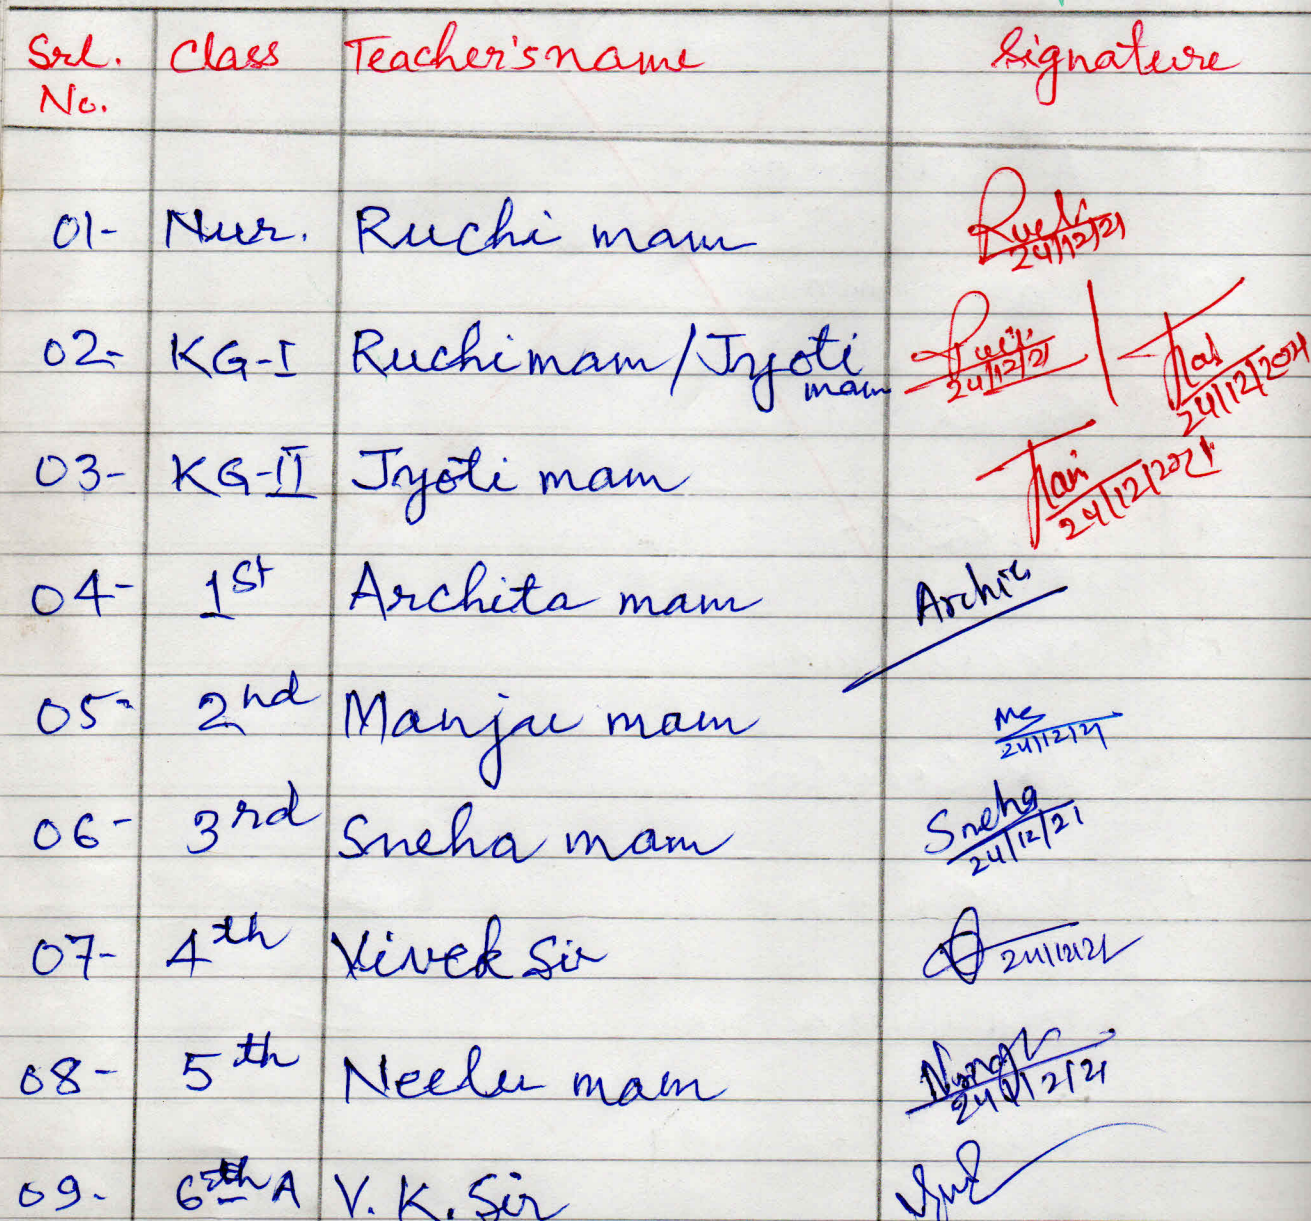 Srl. No. Class Teacher's name Signature
01- Nur. Ruchi mam Ruchi 24/12/21
02- KG-I Ruchi mam/Jyoti mam 24/12/21 24/12/2021
03- KG-II Jyoti mam 24/12/2021
04- 1st Archita mam Archie
05- 2nd Manju mam 24/12/21
06- 3rd Sneha mam Sneha 24/12/21
07- 4th Vivek Sir 24/12/21
08- 5th Neelu mam 24/12/21
09- 6th A V. K. Sir